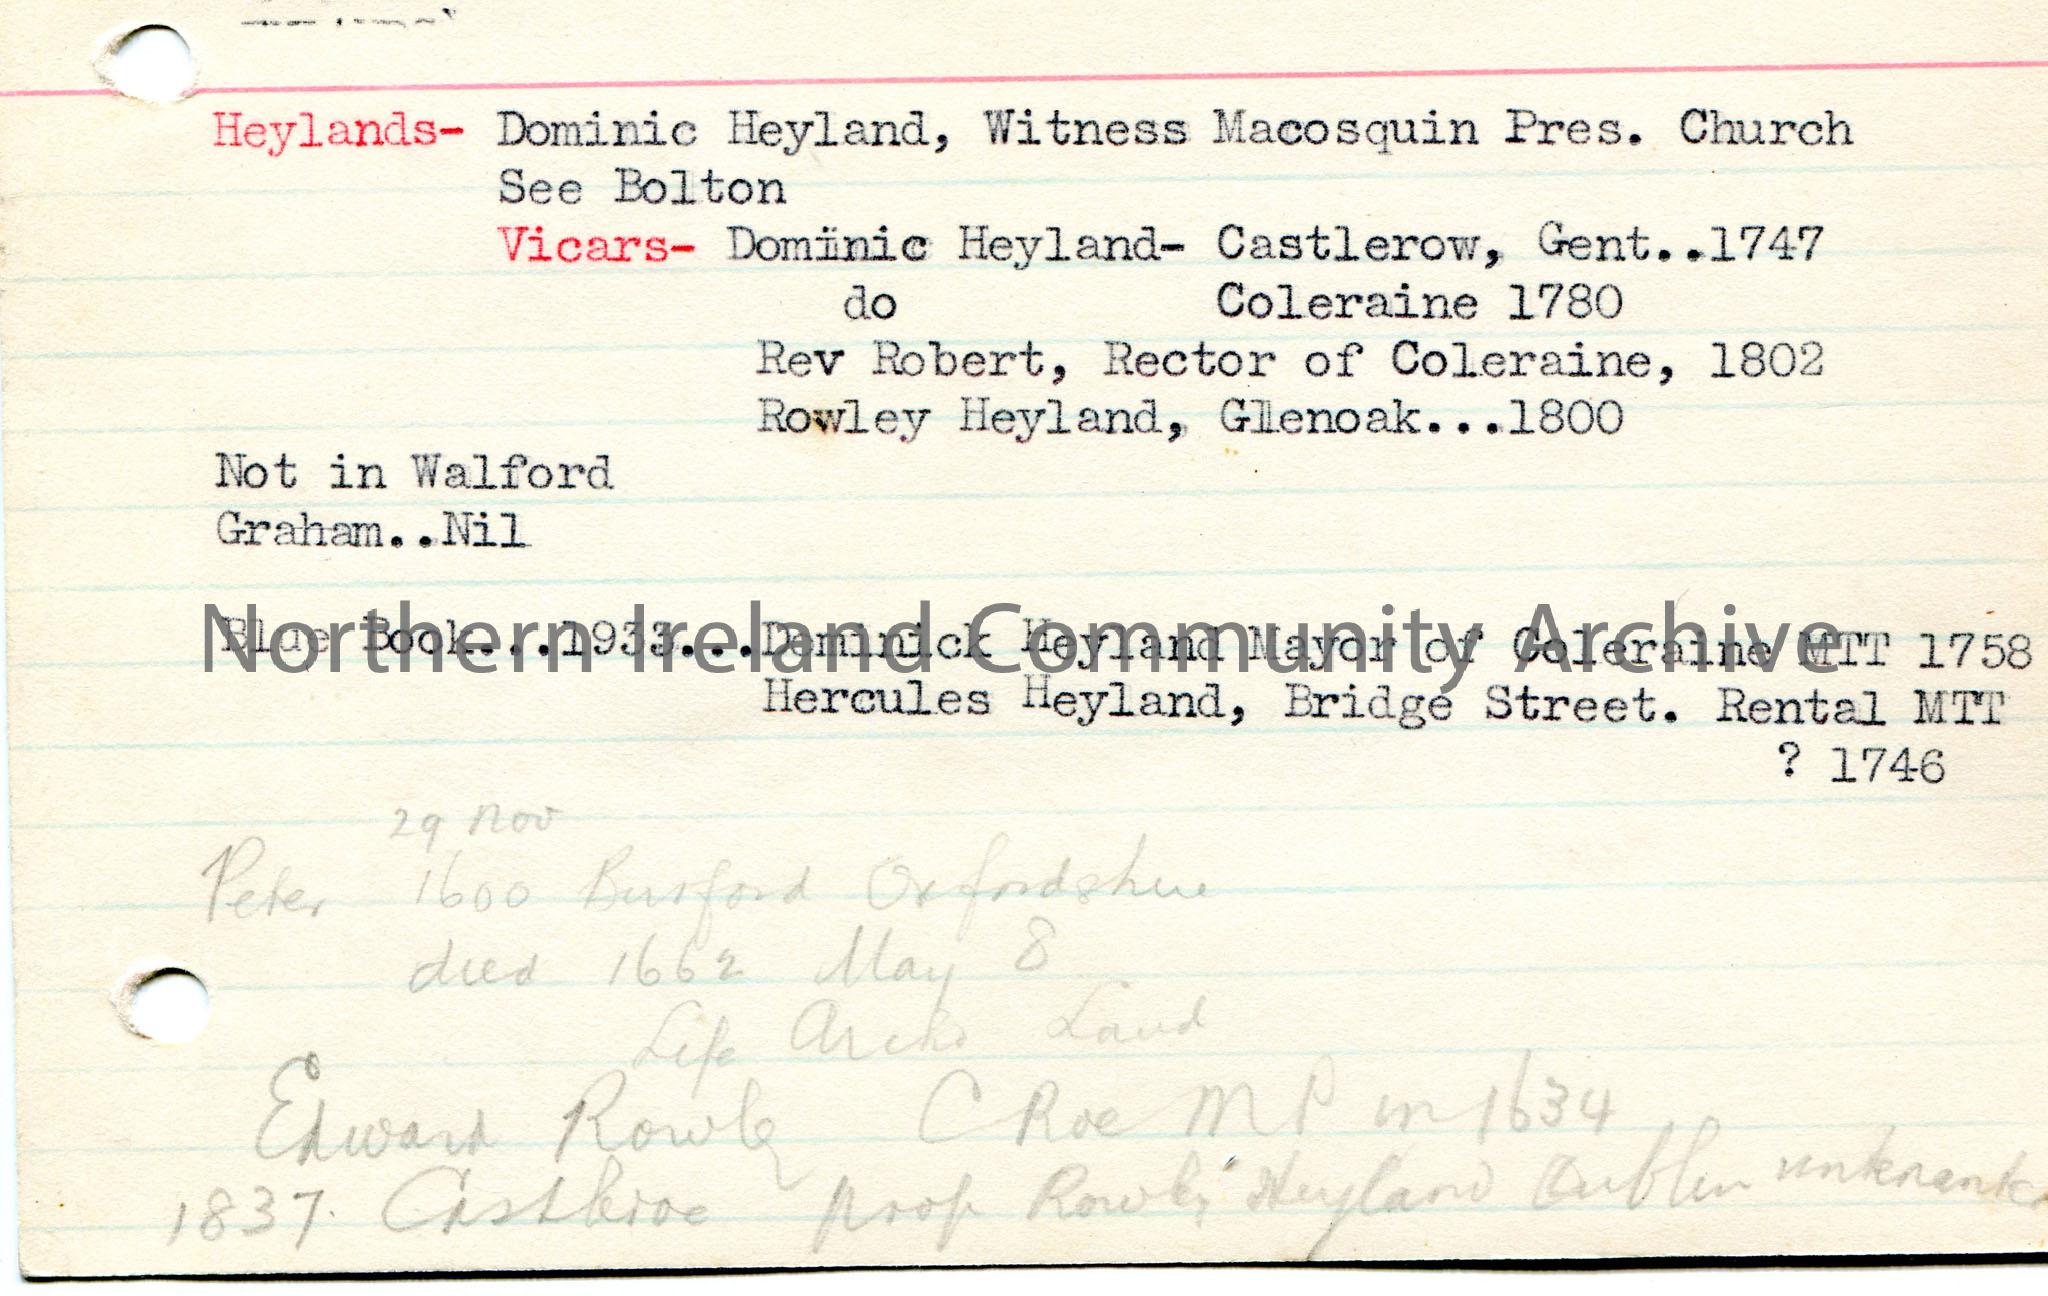 Heylands- Dominic Heyland, Witness Macosquin Pres. Church
See Bolton
Vicars- Dominic Heyland- Castlerow, Gent..1747
do Coleraine 1780
Rev Robert, Rector of Coleraine, 1802
Rowley Heyland, Glenoak...1800
Not in Walford
Graham..Nil
Blue Book....1933...Dominick Heyland Mayor of Coleraine MTT 1758
Northern Ireland Community Archive
Hercules Heyland, Bridge Street. Rental MTT
? 1746
29 Nov
Peter 1600 Burford Oxfordshire
died 1662 May 8
Life Laud
Edward Rowley C Roe MP in 1634
1837. Castleroe prop Rowley Heyland Dublin untenanted